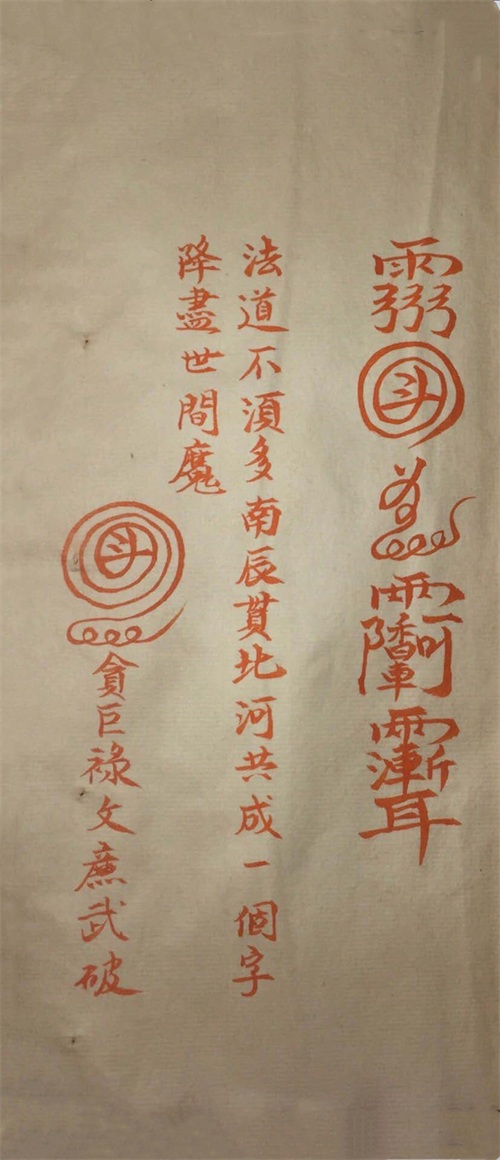 法道不須多南辰貫北河共成一個字
降盡世間魔
貪巨祿文廉武破